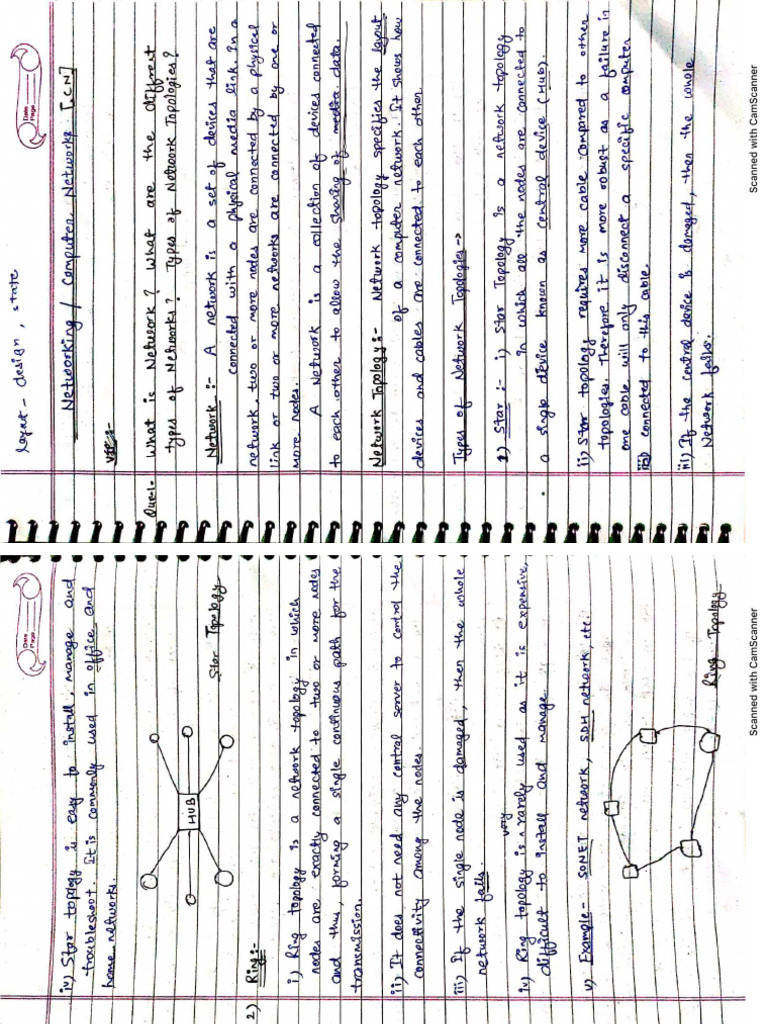 layout - design, state
Date
Page
Networking / Computer Networks [CN]
VIP:-
Que-1- What is Network? What are the different
types of Networks? Types of Network Topologies?
Network :- A network is a set of devices that are
connected with a physical media link. In a
network, two or more nodes are connected by a physical
link or two or more networks are connected by one or
more nodes.
A Network is a collection of devices connected
to each other to allow the sharing of media data.
Network Topology :- Network topology specifies the layout
of a computer network. It shows how
devices and cables are connected to each other.
Types of Network Topologies ->
1) Star :- i) Star Topology is a network topology
in which all the nodes are connected to
a single device known as central device (Hub).
ii) Star topology requires more cable compared to other
topologies. Therefore it is more robust as a failure in
one cable will only disconnect a specific computer
connected to this cable.
iii) If the central device is damaged, then the whole
Network fails.
Scanned with CamScanner
Date
Page
iv) Star topology is easy to install, manage and
troubleshoot. It is commonly used in office and
home networks.
HUB
Star Topology
2) Ring:-
i) Ring topology is a network topology in which
nodes are exactly connected to two or more nodes
and thus, forming a single continuous path for the
transmission.
ii) It does not need any central server to control the
connectivity among the nodes.
iii) If the single node is damaged, then the whole
network fails.
iv) Ring topology is very rarely used as it is expensive,
difficult to install and manage.
v) Example- SONET network, SDH network, etc.
Ring Topology
Scanned with CamScanner